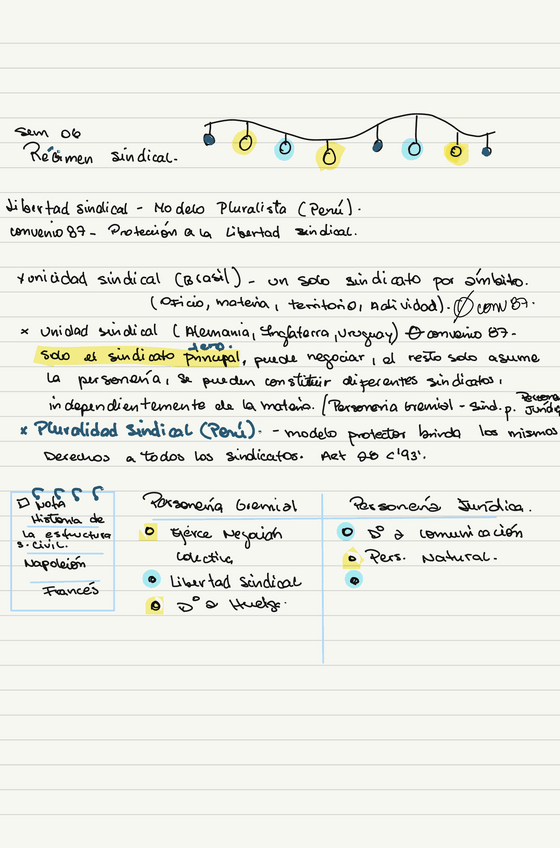 Sem 06
Regimen sindical.
Libertad sindical - Modelo Pluralista (Perú).
convenio 87 - Protección a la Libertad sindical.
x unicidad sindical (Brasil) - un solo sindicato por ámbito.
(oficio, materia, territorio, Actividad). Ø conv 87.
x unidad sindical (Alemania, Inglaterra, Uruguay) Ø convenio 87.
solo el sindicato principal, puede negociar, el resto solo asume
la personería, se pueden constituir diferentes sindicatos,
independientemente de la materia. / Personería Gremial - Sind. p.
x Pluralidad Sindical (Perú). - modelo protector brinda los mismos
Derechos a todos los sindicatos. Art 28 C'93'.
Nota
Historia de
la estructura
s. civil.
Napoleón
Francés
Personería Gremial
Ejerce Negoción
colectiva
Libertad sindical
D° a Huelga.
Personería Jurídica.
D° a comunicación
Pers. Natural.